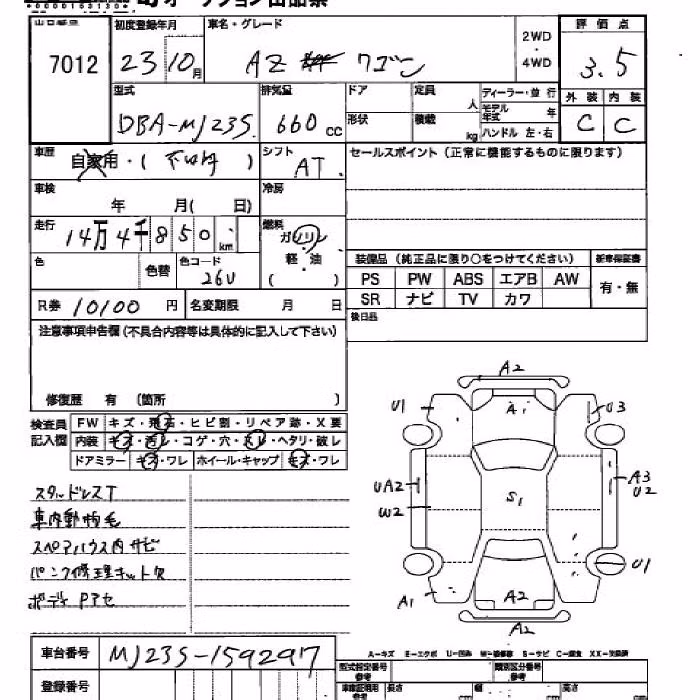 オークション出品票
出品番号 初度登録年月 車名・グレード 2WD ・ 4WD 評価点
7012 23 10月 AZ ワゴン 3.5
型式 排気量 ドア 定員 人 ディーラー・並行 外装 内装
DBA-MJ23S 660 cc 形状 積載 kg モデル年式 年 ハンドル 左・右 C C
車歴 自家用・( ) シフト AT セールスポイント(正常に機能するものに限ります)
車検 年 月( 日) 冷房
走行 14万4千850 km 燃料 ガソリン
軽・油
( )
色 色替 色コード 26U 装備品(純正品に限り○をつけてください) 新車保証書
PS PW ABS エアB AW 有・無
SR ナビ TV カワ
R券 10100 円 名変期限 月 日 後日品
注意事項申告欄(不具合内容等は具体的に記入して下さい)
修復歴 有 〔箇所 〕
検査員記入欄 FW キズ・飛石・ヒビ割・リペア跡・X要
内装 キズ・汚レ・コゲ・穴・スレ・ヘタリ・破レ
ドアミラー キズ・ワレ ホイール・キャップ キズ・ワレ
スタッドレスT
車内動物毛
スペアハウス内サビ
パンク修理キット欠
ボディPアセ
A2
U1 A1 U3
UA2 A3
W2 S1 U2
U1
A1 A2
A2
車台番号 MJ23S-159297
A-キズ E-エクボ U-凹み W-補修跡 S-サビ C-腐食 XX-交換済
登録番号 型式指定番号 参考 類別区分番号 参考
車庫証明用 参考 長さ cm 幅 cm 高さ cm